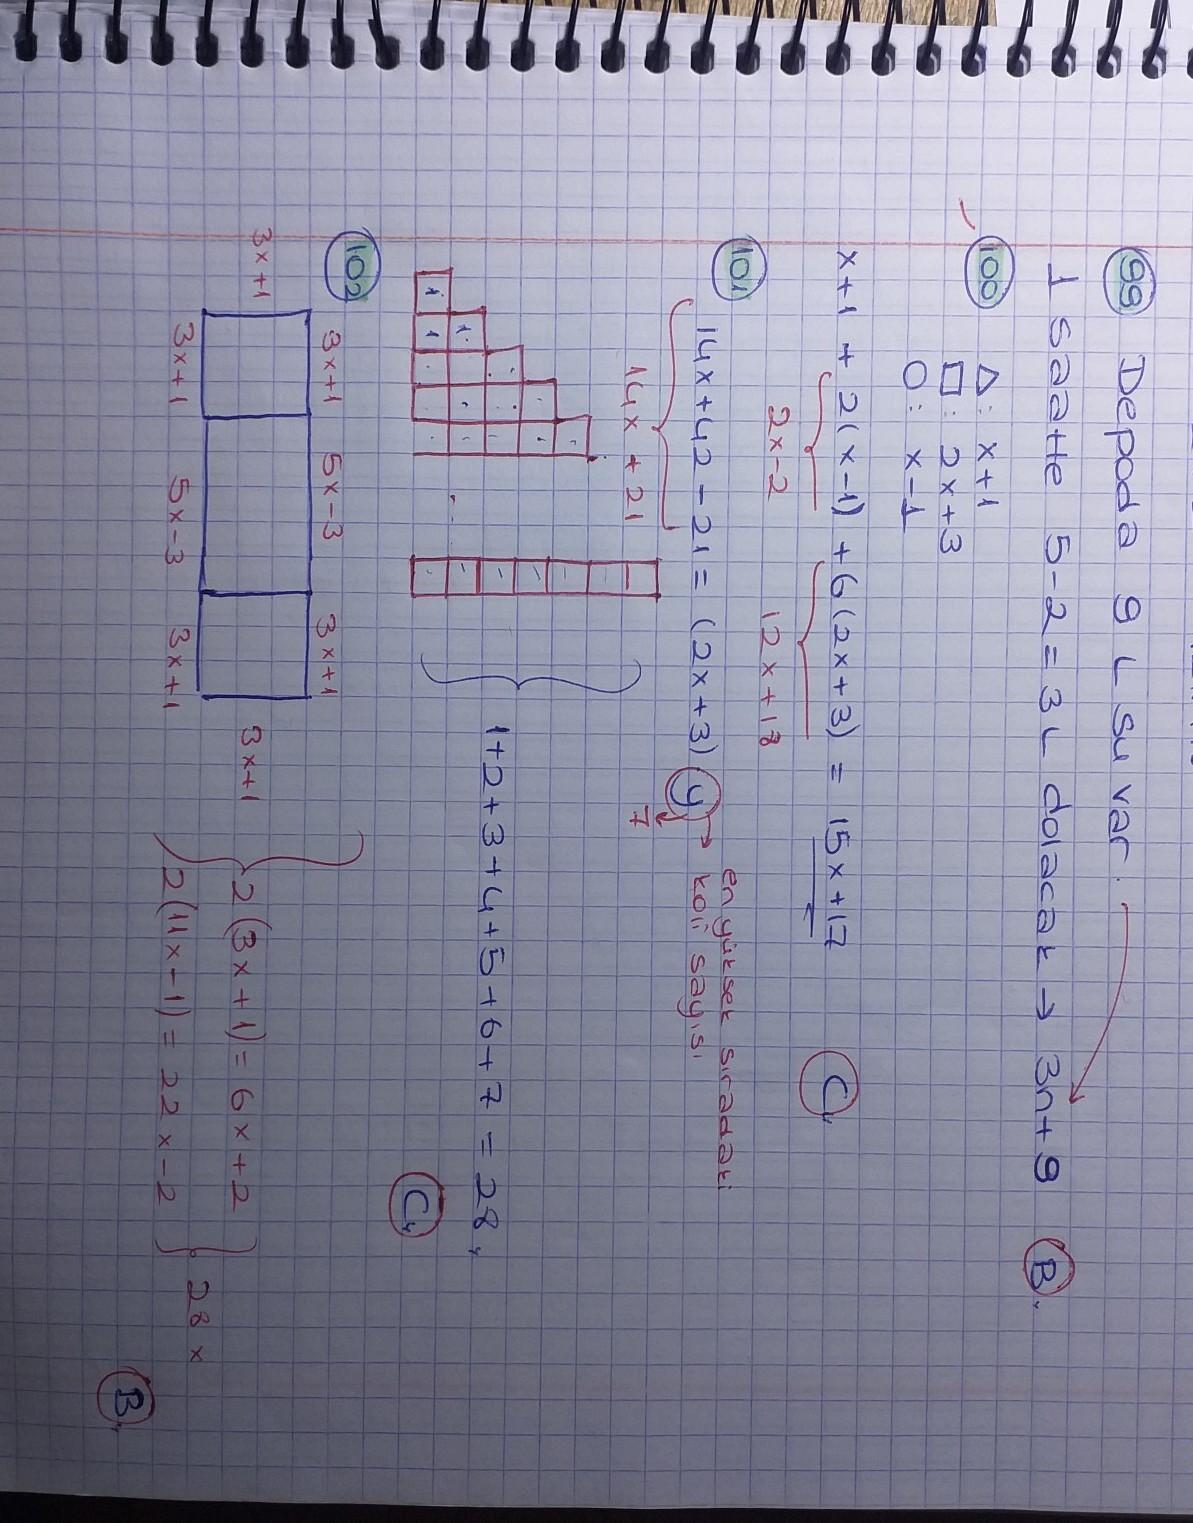 99 Depoda 9 L su var.
1 saatte 5-2=3L dolacak → 3n+9 B
100 △: x+1
□: 2x+3
○: x-1
x+1 + 2(x-1) + 6(2x+3) = 15x+17 C
2x-2 12x+18
101 14x+42-21 = (2x+3) y → en yüksek sıradaki
koli sayısı
14x+21 7
1 1 1
1+2+3+4+5+6+7 = 28 C
102 3x+1 5x-3 3x+1
3x+1 3x+1
3x+1 5x-3 3x+1
2(3x+1) = 6x+2
2(11x-1) = 22x-2
28x B